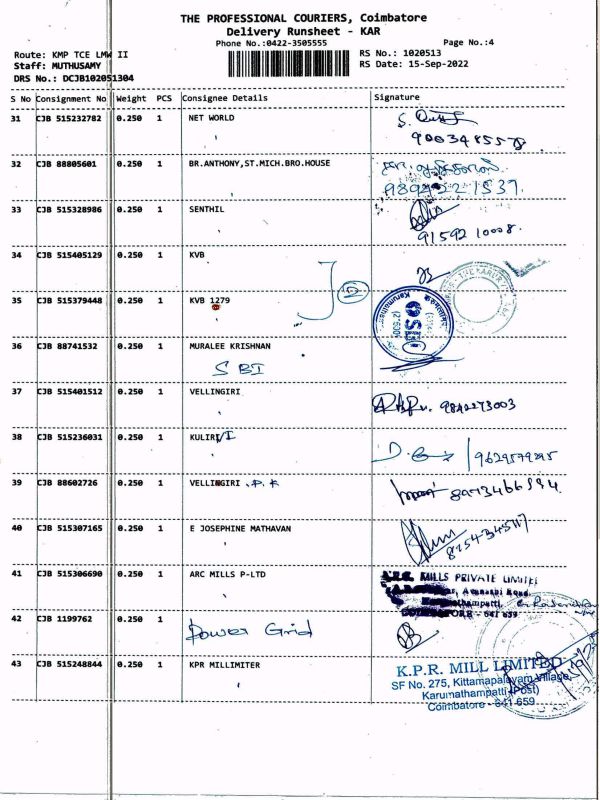 THE PROFESSIONAL COURIERS, Coimbatore
Delivery Runsheet - KAR
Phone No.:0422-3505555 Page No.:4
Route: KMP TCE LMW II RS No.: 1020513
Staff: MUTHUSAMY RS Date: 15-Sep-2022
DRS No.: DCJB102051304
S No Consignment No Weight PCS Consignee Details Signature
31 CJB 515232782 0.250 1 NET WORLD
32 CJB 88805601 0.250 1 BR.ANTHONY,ST.MICH.BRO.HOUSE
33 CJB 515328986 0.250 1 SENTHIL
91592 10008.
34 CJB 515405129 0.250 1 KVB
2
35 CJB 515379448 0.250 1 KVB 1279
36 CJB 88741532 0.250 1 MURALEE KRISHNAN
SBI
37 CJB 515401512 0.250 1 VELLINGIRI
9842273003
38 CJB 515236031 0.250 1 KULIRI
39 CJB 88602726 0.250 1 VELLINGIRI
40 CJB 515307165 0.250 1 E JOSEPHINE MATHAVAN
41 CJB 515306690 0.250 1 ARC MILLS P-LTD
MILLS PRIVATE LIMITED
COIMBATORE - 641 659
42 CJB 1199762 0.250 1 Power Grid
43 CJB 515248844 0.250 1 KPR MILLIMITER
K.P.R. MILL LIMITED
SF No. 275, Kittampalayam Village,
Karumathampatti (Post)
Coimbatore - 641 659